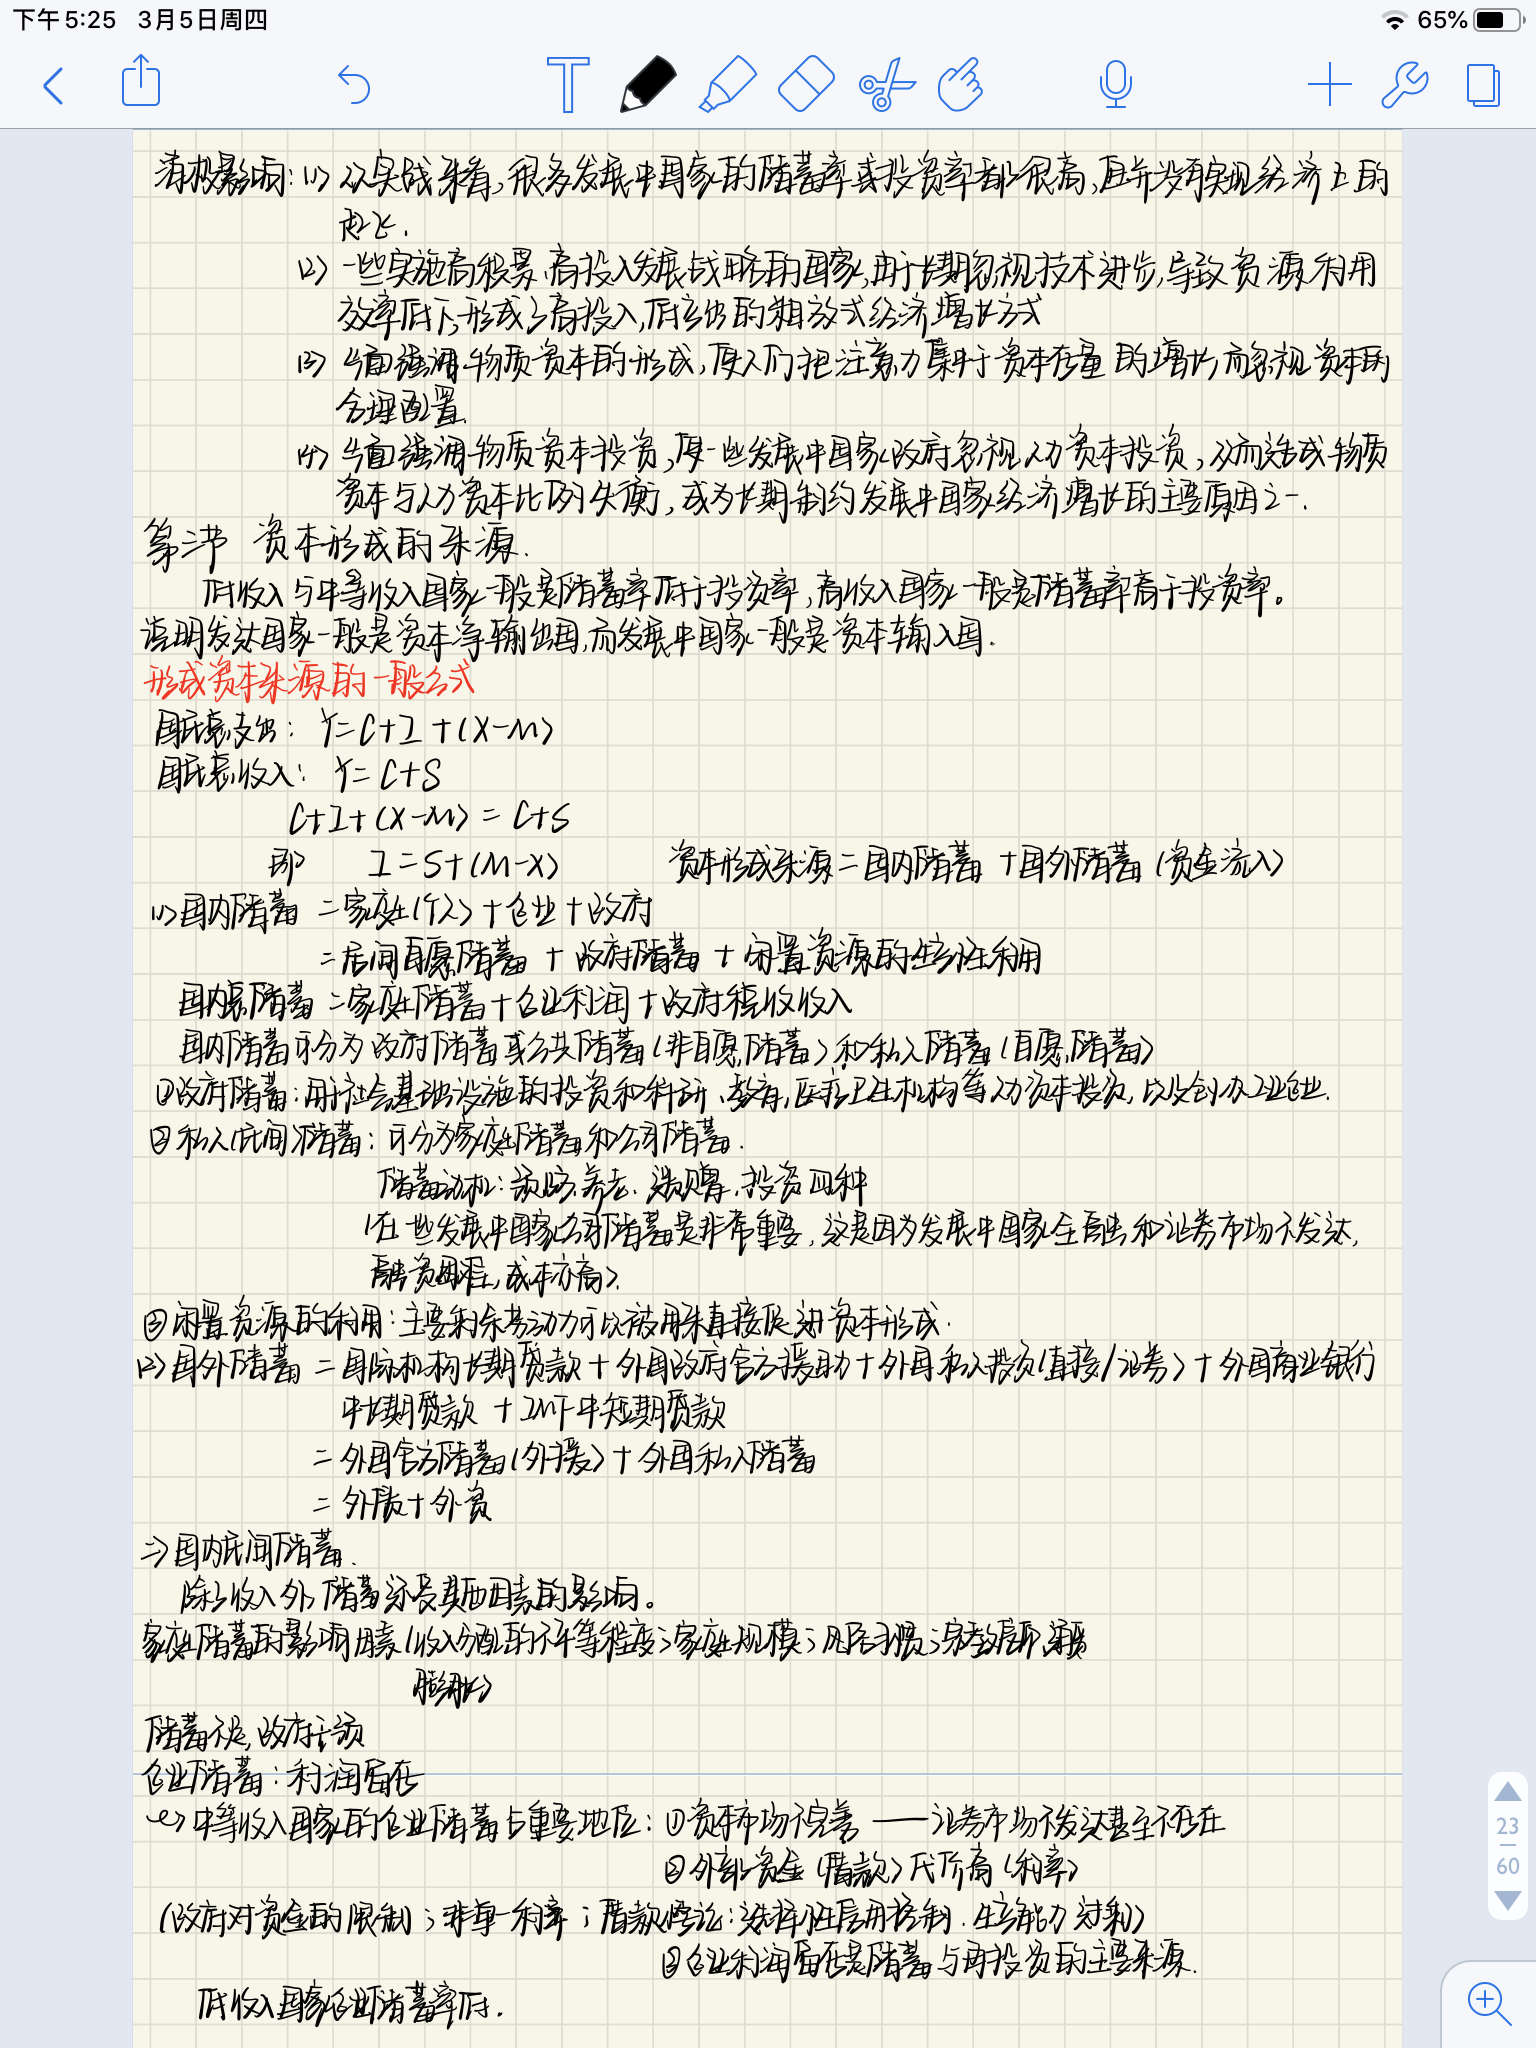 下午5:25 3月5日周四
65%
消极影响：(1) 从实践来看，很多发展中国家的储蓄率或投资率都很高，但并没有实现经济上的
起飞.
(2) 一些实施高积累、高投入发展战略的国家，由于长期忽视技术进步，导致资源利用
效率低下，形成了高投入，低产出的粗放式经济增长方式
(3) 片面强调物质资本的形成，使人们把注意力集中于资本存量的增长而忽视资本的
合理配置.
(4) 片面强调物质资本投资，使一些发展中国家政府忽视人力资本投资，从而造成物质
资本与人力资本比例失衡，成为长期制约发展中国家经济增长的主要原因之一.
第三节 资本形成的来源.
低收入与中等收入国家一般是储蓄率低于投资率，高收入国家一般是储蓄率高于投资率。
说明发达国家一般是资本净输出国，而发展中国家一般是资本输入国.
形成资本来源的一般公式
国民总支出： Y=C+I+(X-M)
国民总收入： Y=C+S
C+I+(X-M)=C+S
即 I=S+(M-X) 资本形成来源=国内储蓄+国外储蓄(资金流入)
(1)国内储蓄 =家庭(个人)+企业+政府
=居间自愿储蓄+政府储蓄+闲置资源的生产性利用
国内总储蓄=家庭储蓄+企业利润+政府税收收入
国内储蓄可分为政府储蓄或公共储蓄(非自愿储蓄)和私人储蓄(自愿储蓄)
①政府储蓄：用于社会基础设施的投资和科研、教育，医疗卫生机构等人力资本投资，以及创办工业企业.
②私人(民间)储蓄：可分为家庭储蓄和公司储蓄.
储蓄动机：预防、养老、遗赠、投资四种
(在一些发展中国家公司储蓄是非常重要，这是因为发展中国家金融和证券市场不发达，
融资困难，成本亦高).
③闲置资源的利用：主要剩余劳动力可以被用来直接促进资本形成.
(2)国外储蓄 =国际机构长期贷款+外国政府官方援助+外国私人投资(直接/证券)+外国商业银行
中长期贷款+IMF中短期贷款
=外国官方储蓄(外援)+外国私人储蓄
=外债+外资
二)国内民间储蓄.
除了收入外，储蓄还受其他因素的影响。
家庭储蓄的影响因素(收入分配的不平等程度；家庭规模；风俗习惯；宗教信仰；通货
膨胀)
储蓄不足，政府干预
企业储蓄：利润留存
中等收入国家的企业储蓄占重要地位：①资本市场不完善——证券市场不发达甚至不存在
②外部资金(借款)代价高(利率)
(政府对资金的限制；非单一利率；借款悖论：选择性信用控制.生产能力过剩)
③企业利润留存是储蓄与再投资的主要来源.
低收入国家企业储蓄率低.
23
60